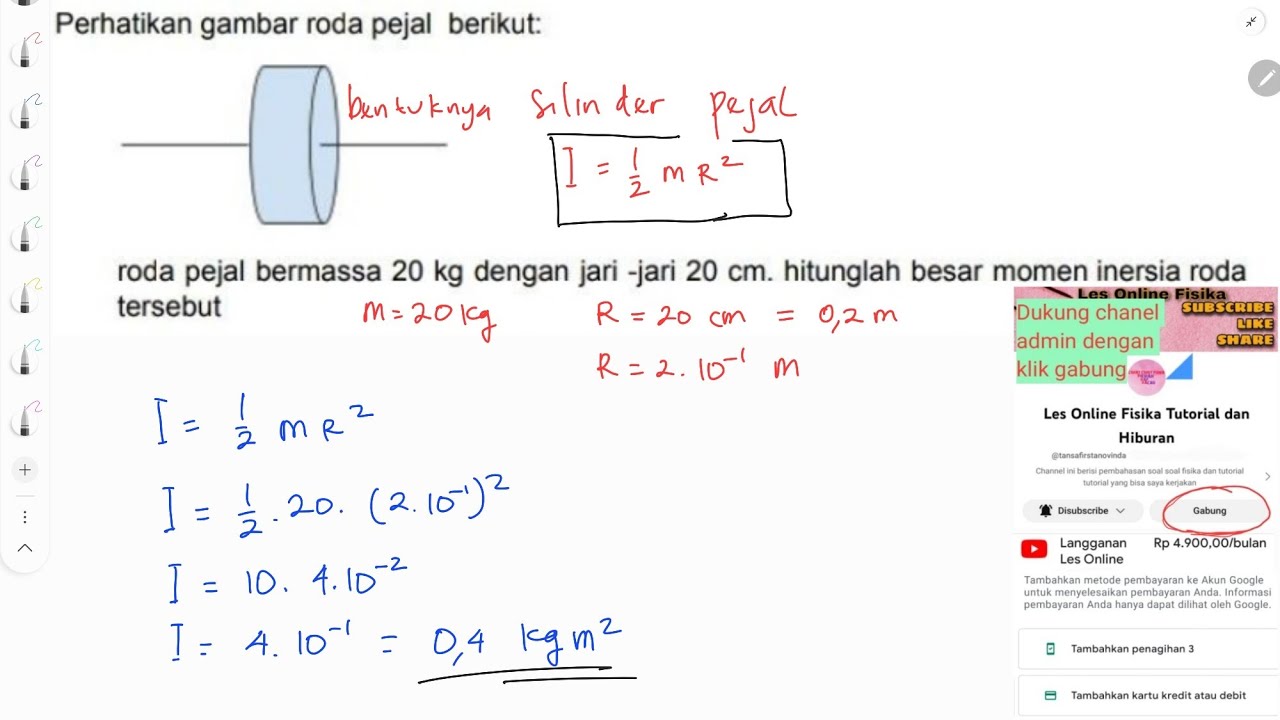 Perhatikan gambar roda pejal berikut:
bentuknya silinder pejal
I = 1/2 m R²
roda pejal bermassa 20 kg dengan jari -jari 20 cm. hitunglah besar momen inersia roda
tersebut
m = 20 kg R = 20 cm = 0,2 m
R = 2 . 10⁻¹ m
I = 1/2 m R²
I = 1/2 . 20 . (2 . 10⁻¹)²
I = 10 . 4 . 10⁻²
I = 4 . 10⁻¹ = 0,4 kg m²
Les Online Fisika
SUBSCRIBE
LIKE
SHARE
Dukung chanel
admin dengan
klik gabung
Les Online Fisika Tutorial dan
Hiburan
@tansafirstanovinda
Channel ini berisi pembahasan soal soal fisika dan tutorial
tutorial yang bisa saya kerjakan
Disubscribe Gabung
Langganan Rp 4.900,00/bulan
Les Online
Tambahkan metode pembayaran ke Akun Google
untuk menyelesaikan pembayaran Anda. Informasi
pembayaran Anda hanya dapat dilihat oleh Google.
Tambahkan penagihan 3
Tambahkan kartu kredit atau debit